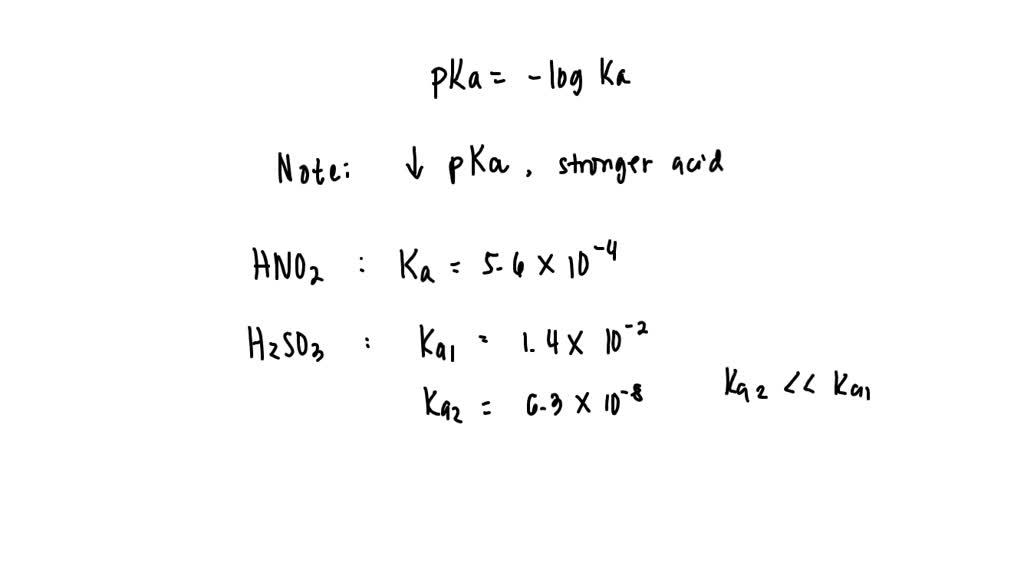 pKa = -log Ka
Note: ↓ pKa, stronger acid
HNO2 : Ka = 5.6 × 10^-4
H2SO3 : Ka1 = 1.4 × 10^-2
Ka2 = 6.3 × 10^-8 Ka2 << Ka1